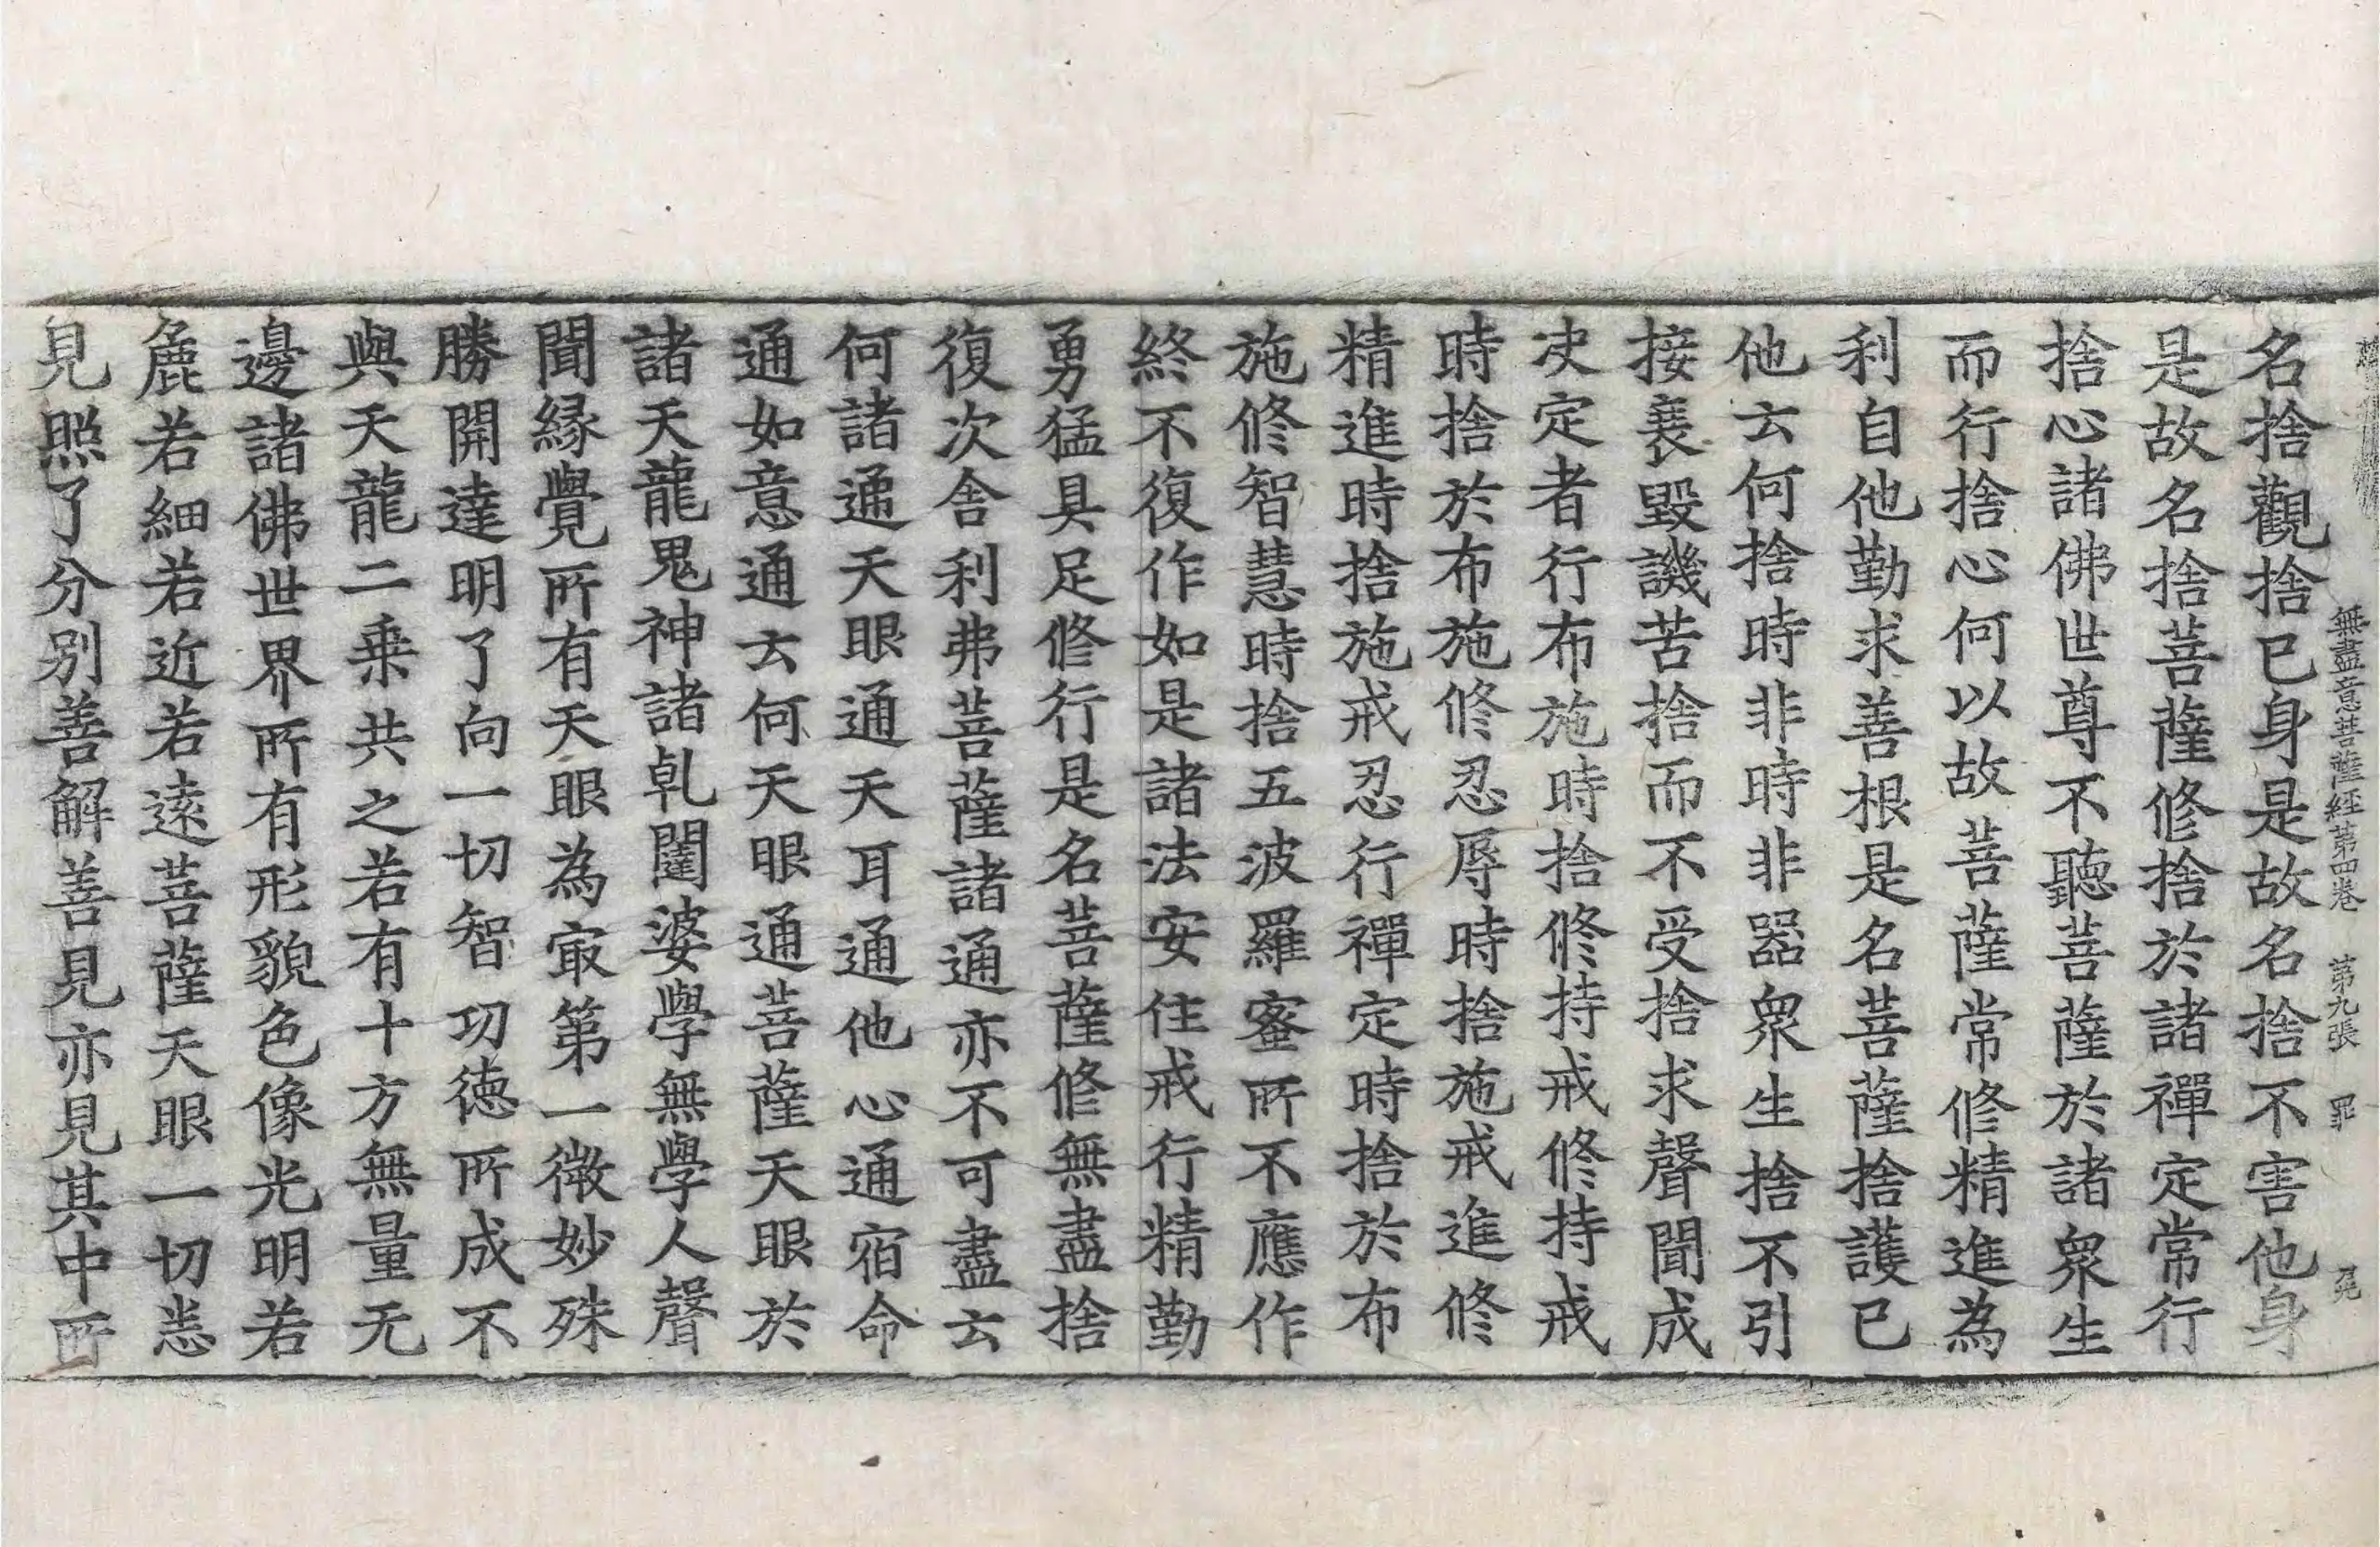 無盡意菩薩經第四卷　第九張　罪
名捨觀捨已身是故名捨不害他身
是故名捨菩薩修捨於諸禪定常行
捨心諸佛世尊不聽菩薩於諸衆生
而行捨心何以故菩薩常修精進為
利自他勤求善根是名菩薩捨護已
他云何捨時非時非器衆生捨不引
接衰毀譏苦捨而不受捨求聲聞成
决定者行布施時捨修持戒修持戒
時捨於布施修忍辱時捨施戒進修
精進時捨施戒忍行禪定時捨於布
施修智慧時捨五波羅蜜所不應作
終不復作如是諸法安住戒行精勤
勇猛具足修行是名菩薩修無盡捨
復次舍利弗菩薩諸通亦不可盡云
何諸通天眼通天耳通他心通宿命
通如意通云何天眼通菩薩天眼於
諸天龍鬼神諸乹闥婆學無學人聲
聞緣覺所有天眼為㝡第一微妙殊
勝開達明了向一切智功德所成不
與天龍二乗共之若有十方無量无
邊諸佛世界所有形貌色像光明若
麁若細若近若遠菩薩天眼一切悉
見照了分別善解善見亦見其中所